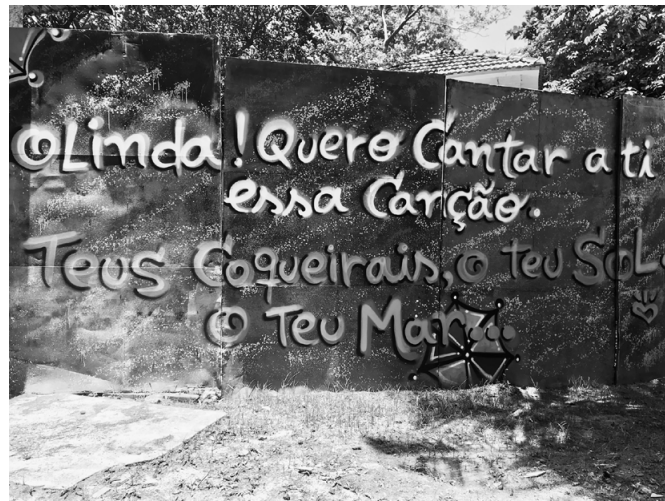 OLinda! Quero Cantar a ti
essa Canção.
Teus Coqueirais, o teu SoL.
O Teu Mar...